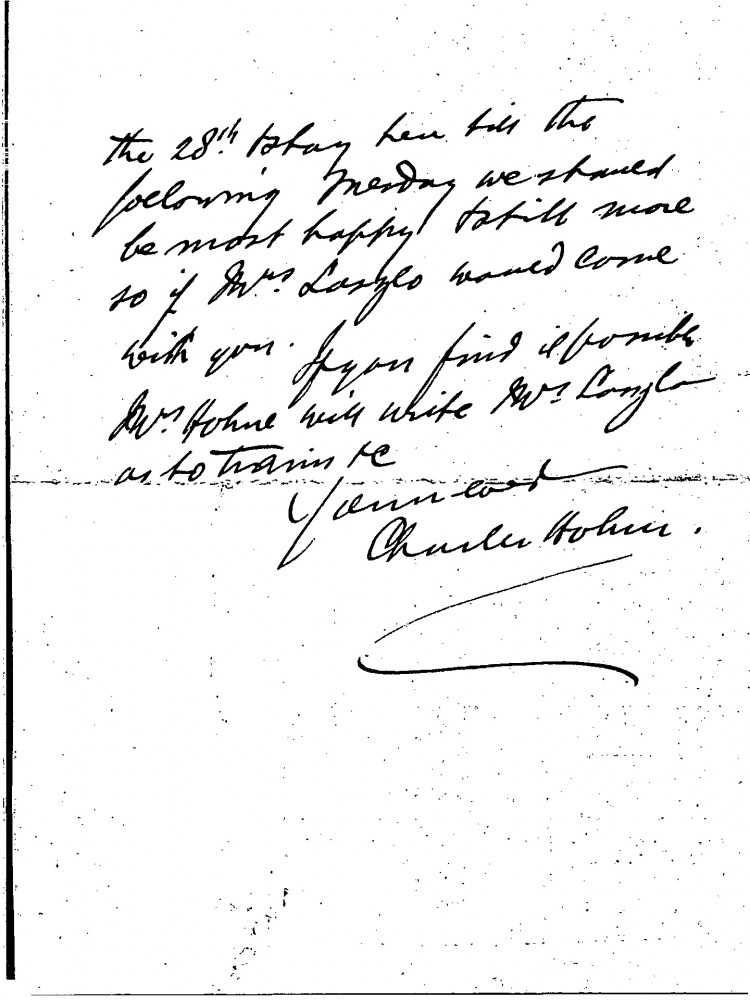 the 28th. to stay here till the
following Tuesday we should
be most happy & still more
so if Mrs. Laszlo would come
with you. If you find it possible
Mrs Hohne will write Mrs Laszlo
as to trains &c
Yours
Charles Hohne.